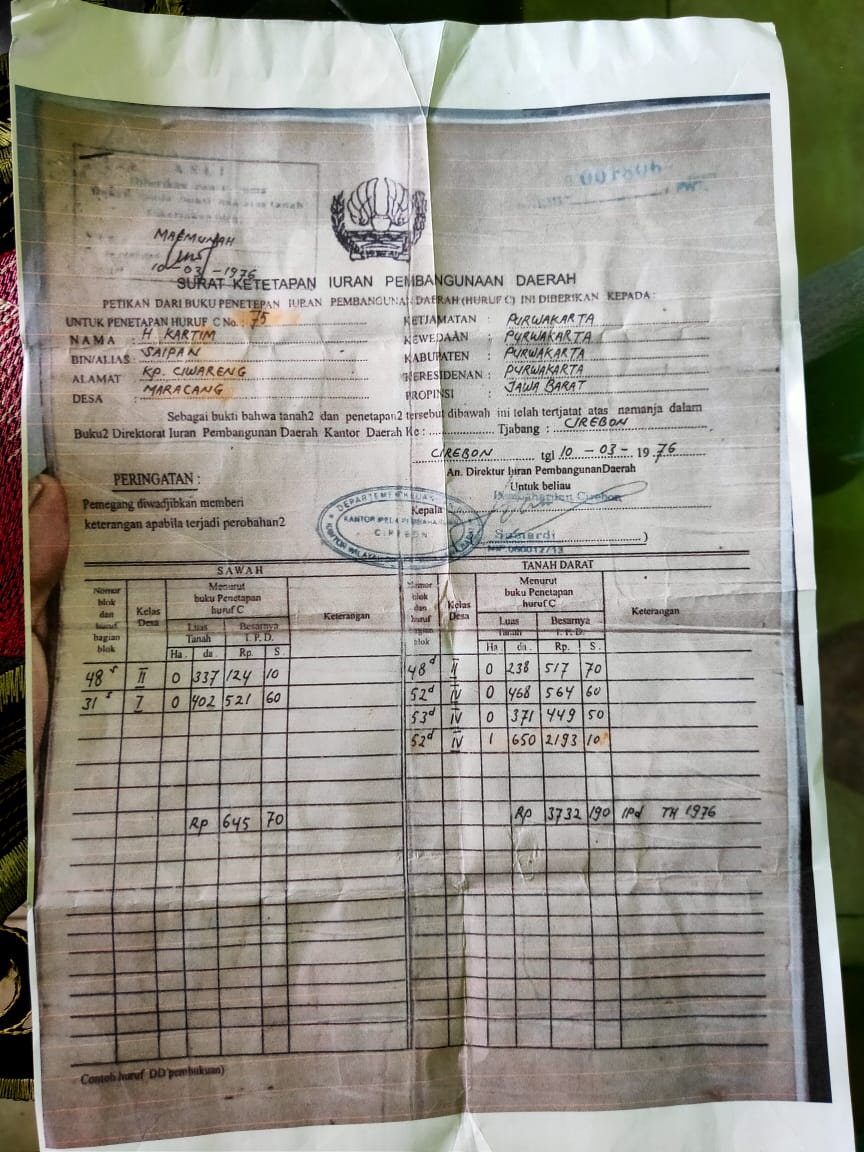 ASLI
MAEMUNAH
10-03-1976
SURAT KETETAPAN IURAN PEMBANGUNAAN DAERAH
PETIKAN DARI BUKU PENETEPAN IURAN PEMBANGUNAN DAERAH (HURUF C) INI DIBERIKAN KEPADA :
UNTUK PENETAPAN HURUF C No. : 75
NAMA : H KARTIM
BIN/ALIAS : SAIPAN
ALAMAT : KP. CIWARENG
DESA : MARACANG
KETJAMATAN : PURWAKARTA
KEWEDAAN : PURWAKARTA
KABUPATEN : PURWAKARTA
KERESIDENAN : PURWAKARTA
PROPINSI : JAWA BARAT
Sebagai bukti bahwa tanah2 dan penetapan2 tersebut dibawah ini telah tertjatat atas namanja dalam
Buku2 Direktorat Iuran Pembangunan Daerah Kantor Daerah Ke : Tjabang : CIREBON
CIREBON tgl 10 - 03 - 1976
An. Direktur Iuran PembangunanDaerah
Untuk beliau
Kepala
PERINGATAN :
Pemegang diwadjibkan memberi
keterangan apabila terjadi perobahan2
DEPARTEMEN KEUANGAN
CIREBON
KANTOR WILAYAH
Sumardi
SAWAH
Nomor blok dan huruf bagian blok
Kelas Desa
Menurut buku Penetapan huruf C
Keterangan
Luas Tanah
Besarnya I. P. D.
Ha. da. Rp. S.
48 s II 0 337 124 10
31 s I 0 402 521 60
Rp 645 70
TANAH DARAT
Nomor blok dan huruf bagian blok
Kelas Desa
Menurut buku Penetapan huruf C
Keterangan
Luas Tanah
Besarnya I. P. D.
Ha. da. Rp. S.
48 d II 0 238 517 70
52 d IV 0 468 564 60
53 d IV 0 371 449 50
52 d IV 1 650 2193 10
Rp 3732 190 IPd TH 1976
Contoh huruf DD pembukuan)